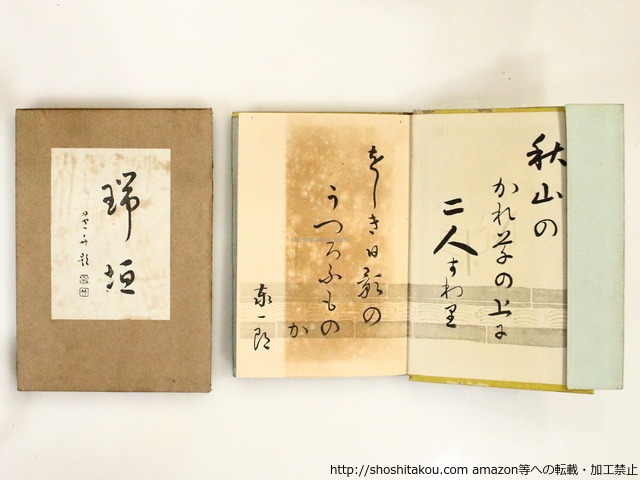 瑞垣
題
秋山の
かれ草の上に
二人すわり
をしき日影の
うつろふもの
か
泰一郎
shoshitakou.com
http://shoshitakou.com amazon等への転載・加工禁止